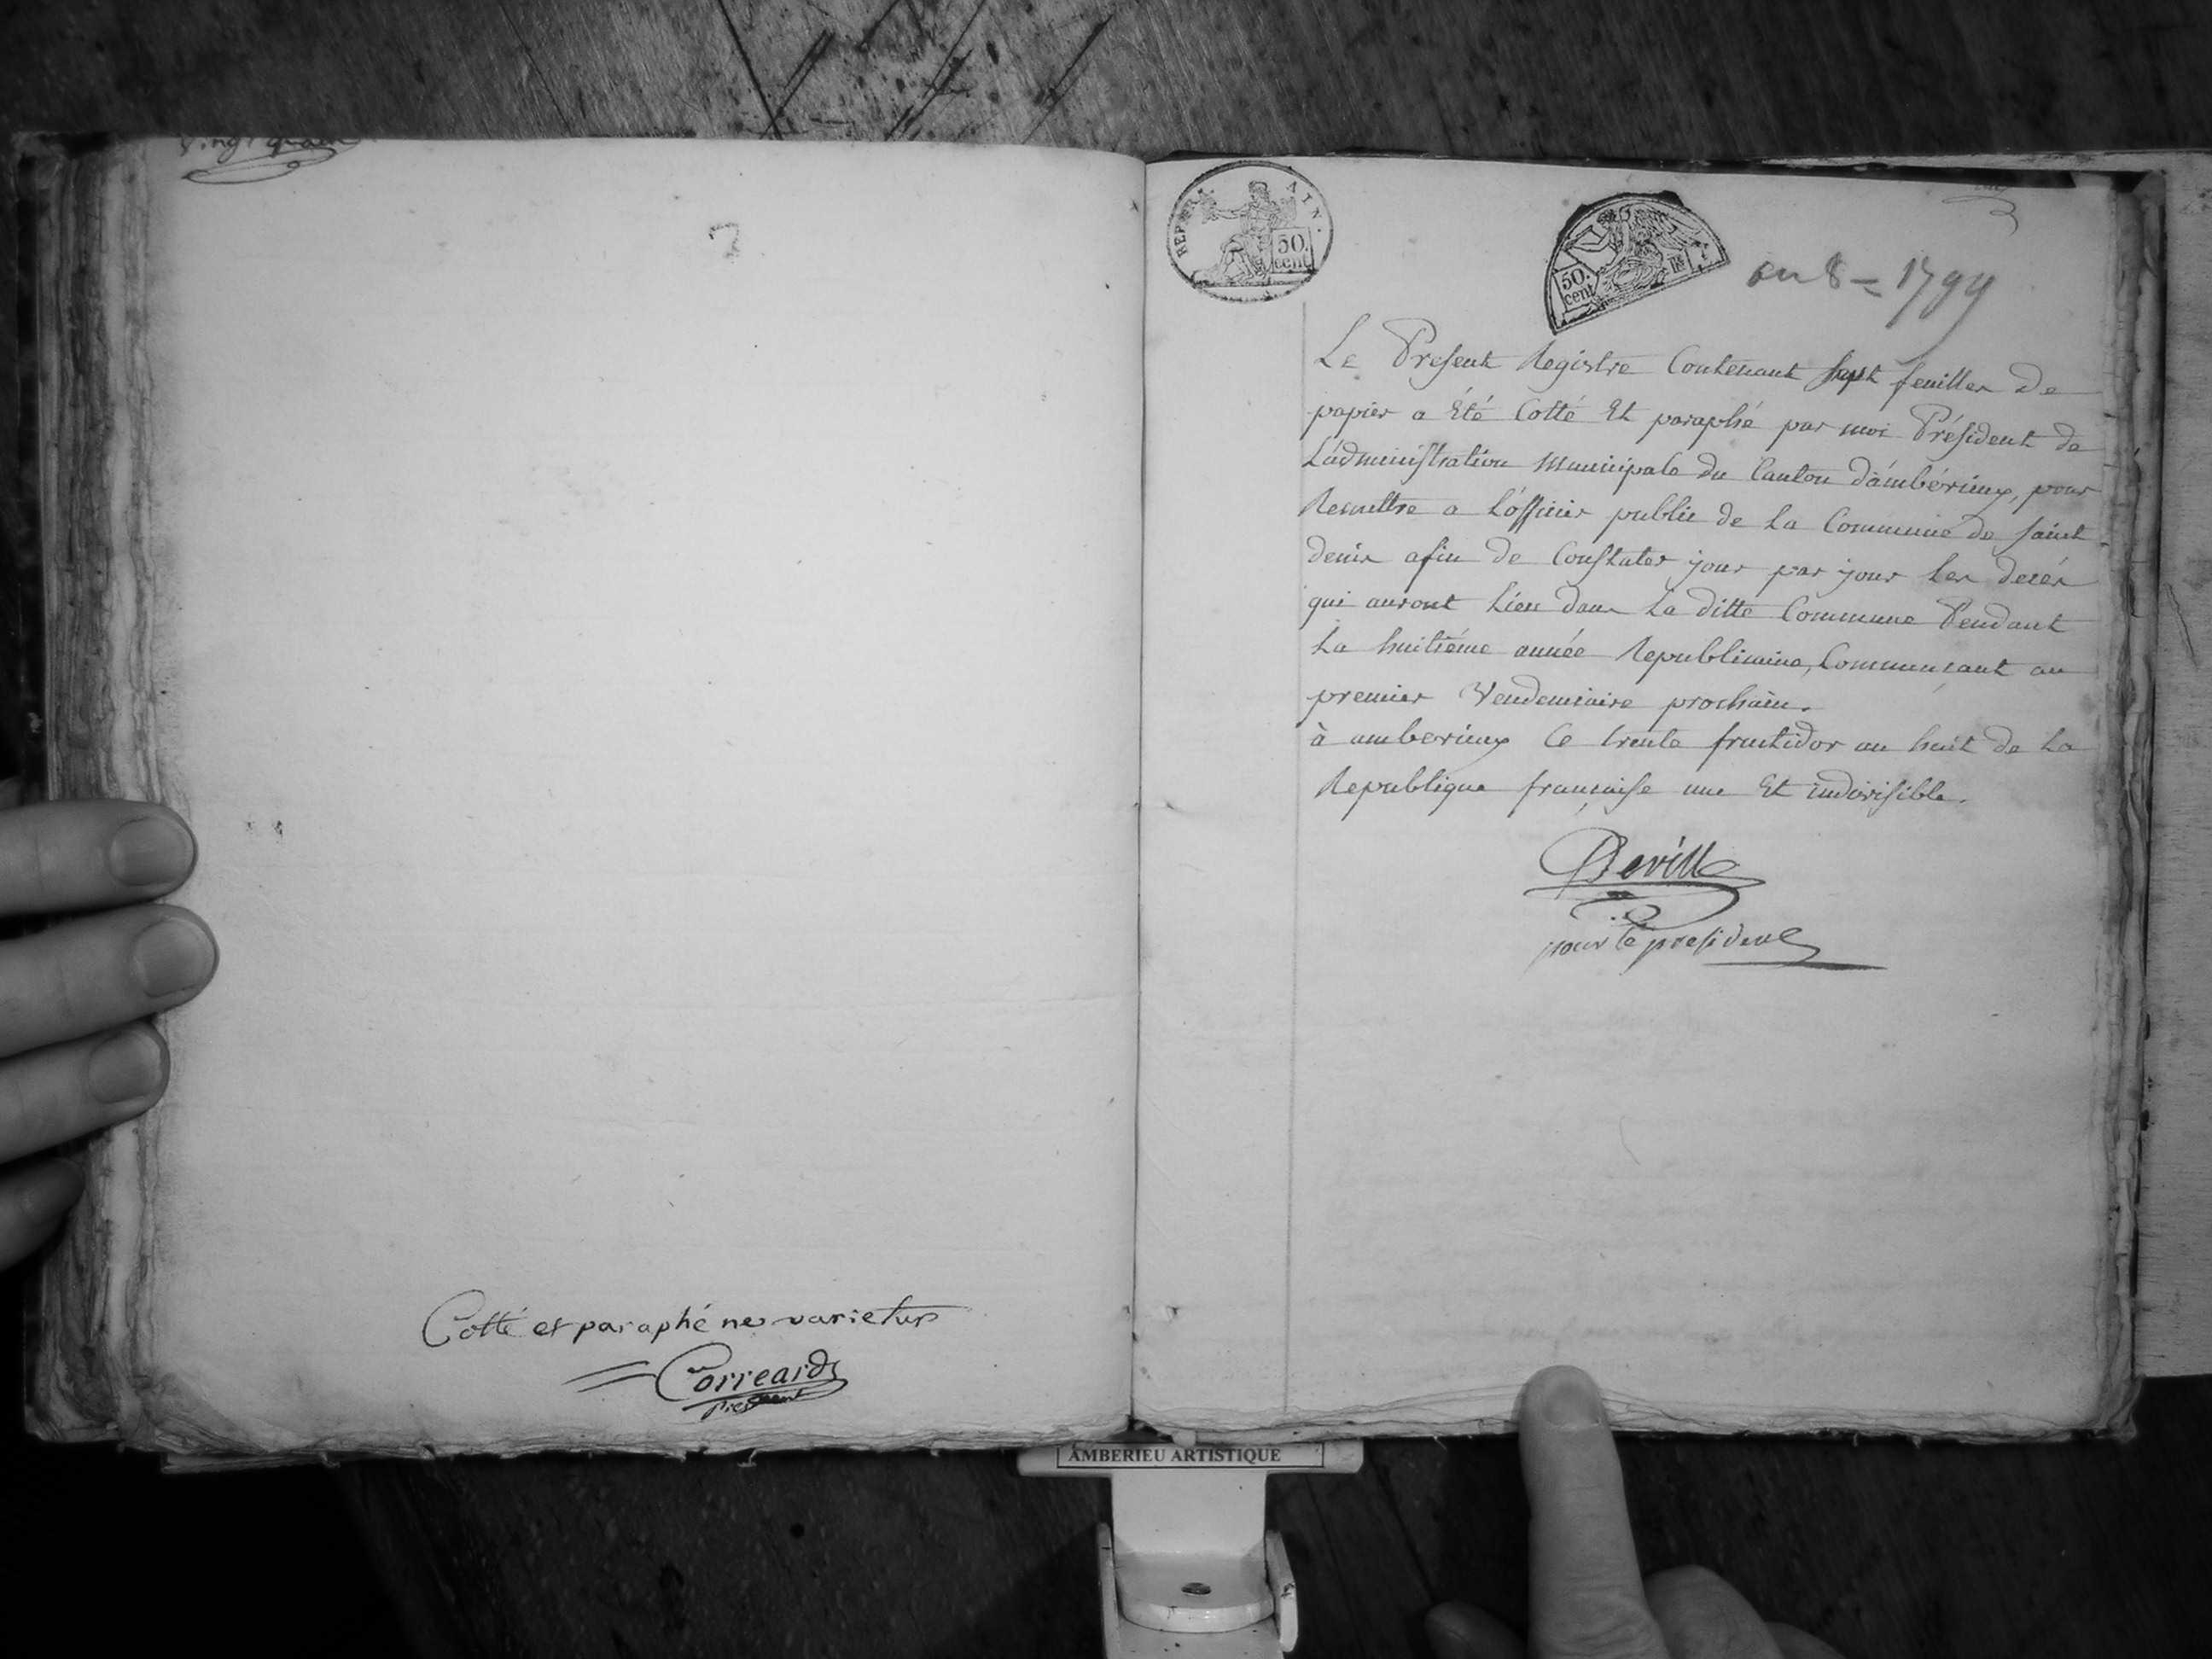 Cotté et paraphé ne varietur
Correard
président
REP. FRA. AIN.
50.
cent
50.
cent
an 8 = 1799
Le Present Registre Contenant sept feuilles de
papier a Eté Cotté Et paraphé par moi Président de
L'administration Municipale du Canton d'ambérieux, pour
Remettre a L'officier public de La Commune de saint
denis afin de Constater jour par jour les decés
qui auront Lieu dans La ditte Commune Pendant
La huitiéme année Republicaine, Commençant au
premier Vendemiaire prochain.
à amberieux Ce trente fructidor an huit de La
Republique française une Et indivisible.
Deville
pour le president
AMBERIEU ARTISTIQUE